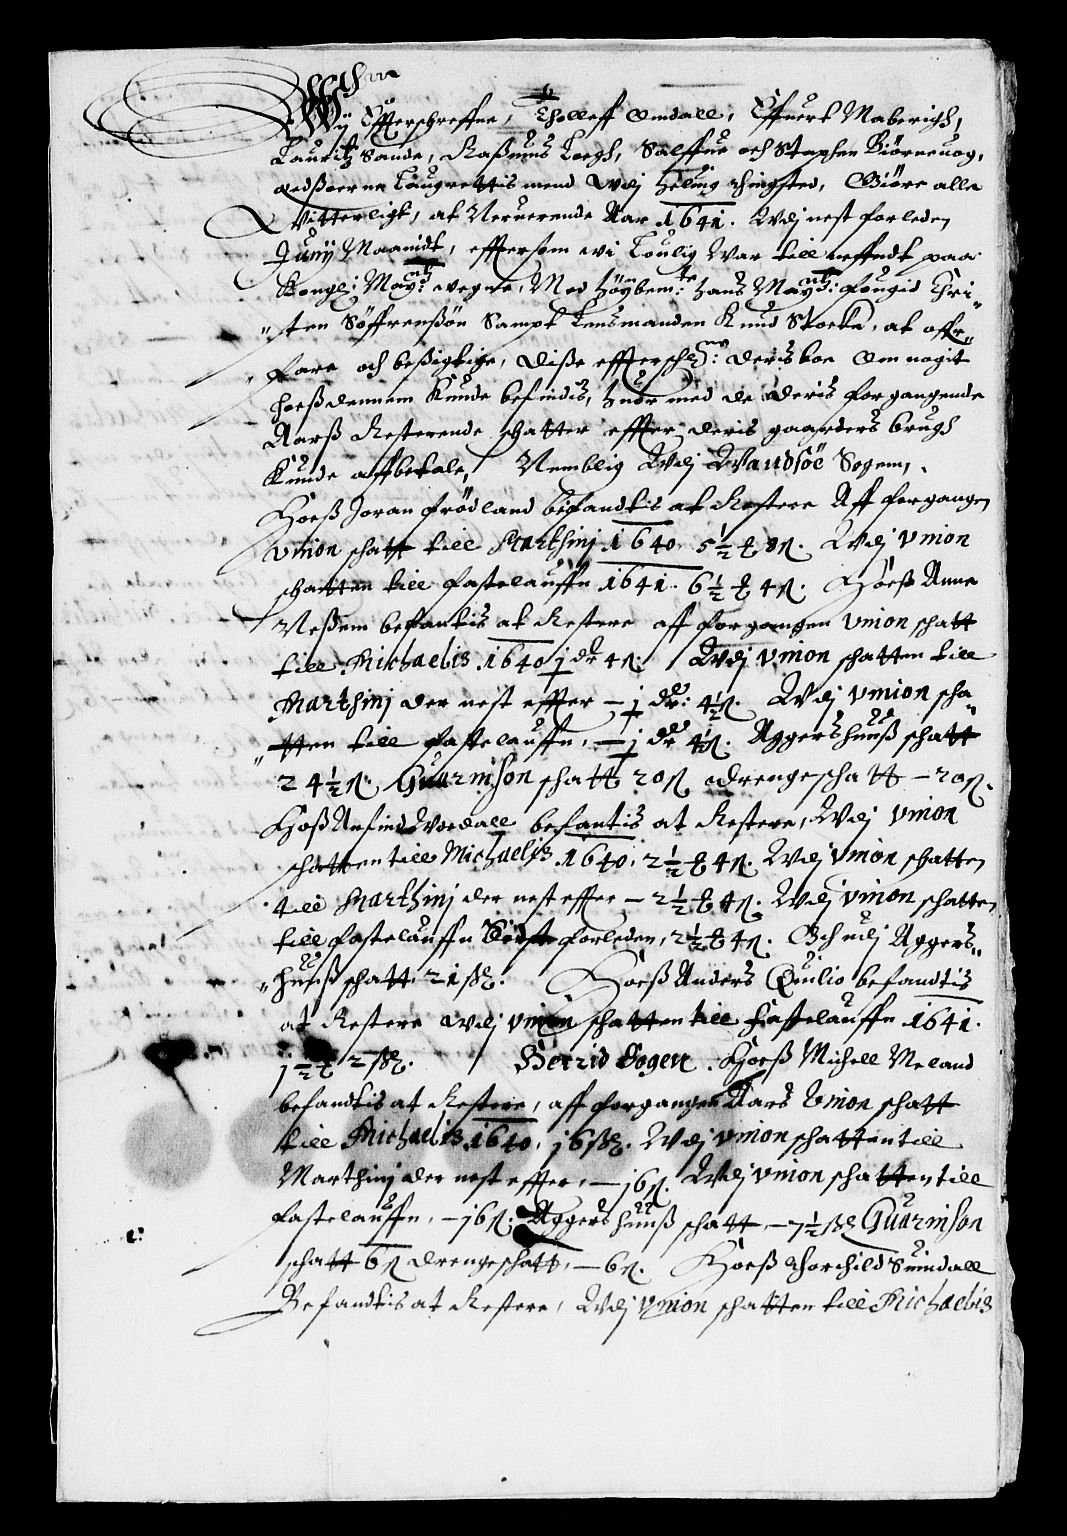 Wij Effterschreffne, Tholleff Omdall, Effuert Maberigh,
Lauritz Sande, Raßmus Loegh, Salffue och Staphen Biørneuog,
edßorne Laugrettis mend wdj Helling thingsted, Giøre alle
Vitterligt, at Neruerende Aar 1641. Wdj nest forleden
Junij Maanidt, effttersom wi Loulig War till neffndt paa
Kongl: May:tz wegne, Med Høybem:te Hans May:tz: fougid Chri„
„sten Søffrenßøn Sampt Lensmanden Knud Stocke, at offr„
„fare och beßigtige, diße effterschr:ne: deris boe Om nogit
hoeß dennem Kunde befindis, Huor med de deris forgangende
Aarß Resterende schatter effter deris gaarders brugh
Kunde affbetale, Nemblig Wdj Vandsøe Sogen,
Hoeß Joran Frødland befandtis at Restere Aff forgangen
Vnion schatt till Marthinj 1640. 5½ 8ß. Wdj Vnion
schatten till fastelauffn 1641. 6½ 4ß. Hoeß Anne
Neßem befantis at Restere aff forgangen Vnion schatt
till Michaelis. 1640 j dr 4ß. Wdj Vnion schatten till
Marthinj der nest effter – j dr: 4½ß. Wdj Vnion scha„
„tten till fastelauffn, – j dr 4½ß. Aggershuuß schatt
2 4½ß. Guarnison schatt 20ß drengeschatt – 20ß.
Hoß Anfind Woedall befantis at Restere, Wdj Vnion
schatten till Michaelis. 1640. 2½ 4ß. Wdj Vnion schatten
till Marthinj der nest effter – 2½ 4ß. Wdj Vnion schatten
till fastelauffn Sidste forleden, 2½ 4ß. Och udj Aggers„
„huuß schatt 21 ß. Hoeß Anders Quilio befandtis
at Restere wdj Vnion schatten till fastelauffn 1641.
j½ 2 ß. Berrid Sogen. Hoeß Michell Meland
befandtis at Restere, aff forgangen Aars Vnion schatt
till Michaelis. 1640. j6 ß. Wdj Vnion schatten till
Marthinj der nest effter, – j6ß. Wdj Vnion schatten till
fastelauffn, – j6ß. Aggershuuß schatt – 7½ ß Guarnison
schatt 6ß drengeschatt, – 6ß. Hoeß thorchild Suindall
Befandtis at Restere, Wdj Vnion schatten till Michaelis